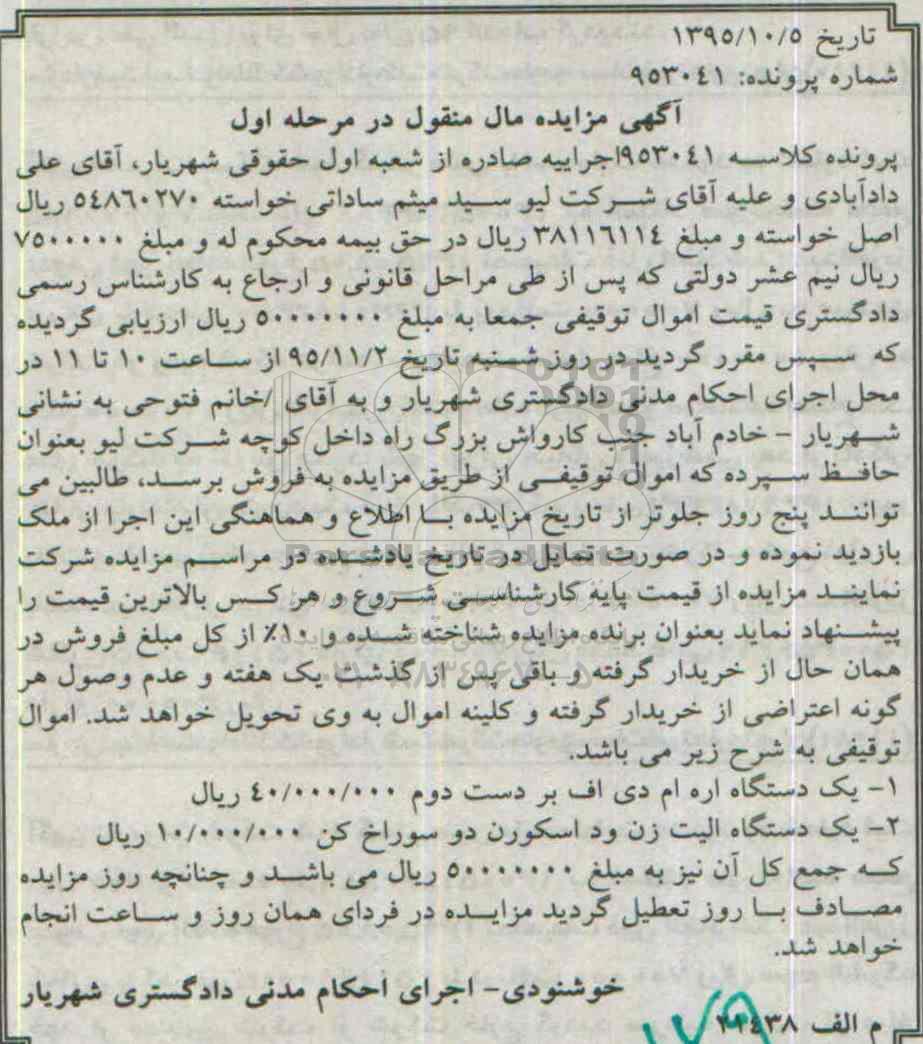 تاریخ ۱۳۹۵/۱۰/۵
شماره پرونده: ۹۵۳۰۴۱
آگهی مزایده مال منقول در مرحله اول
پرونده کلاسه ۹۵۳۰۴۱اجراییه صادره از شعبه اول حقوقی شهریار، آقای علی
دادآبادی و علیه آقای شرکت لیو سید میثم ساداتی خواسته ۵٤۸٦۰۲۷۰ ریال
اصل خواسته و مبلغ ۳۸۱۱٦۱۱٤ ریال در حق بیمه محکوم له و مبلغ ۷۵۰۰۰۰۰
ریال نیم عشر دولتی که پس از طی مراحل قانونی و ارجاع به کارشناس رسمی
دادگستری قیمت اموال توقیفی جمعا به مبلغ ۵۰۰۰۰۰۰۰ ریال ارزیابی گردیده
که سپس مقرر گردید در روز شنبه تاریخ ۹۵/۱۱/۲ از ساعت ۱۰ تا ۱۱ در
محل اجرای احکام مدنی دادگستری شهریار و به آقای /خانم فتوحی به نشانی
شهریار – خادم آباد جنب کارواش بزرگ راه داخل کوچه شرکت لیو بعنوان
حافظ سپرده که اموال توقیفی از طریق مزایده به فروش برسد، طالبین می
توانند پنج روز جلوتر از تاریخ مزایده با اطلاع و هماهنگی این اجرا از ملک
بازدید نموده و در صورت تمایل در تاریخ یادشده در مراسم مزایده شرکت
نمایند مزایده از قیمت پایه کارشناسی شروع و هر کس بالاترین قیمت را
پیشنهاد نماید بعنوان برنده مزایده شناخته شده و ۱۰٪ از کل مبلغ فروش در
همان حال از خریدار گرفته و باقی پس از گذشت یک هفته و عدم وصول هر
گونه اعتراضی از خریدار گرفته و کلینه اموال به وی تحویل خواهد شد. اموال
توقیفی به شرح زیر می باشد.
۱– یک دستگاه اره ام دی اف بر دست دوم ٤۰/۰۰۰/۰۰۰ ریال
۲– یک دستگاه الیت زن ود اسکورن دو سوراخ کن ۱۰/۰۰۰/۰۰۰ ریال
که جمع کل آن نیز به مبلغ ۵۰۰۰۰۰۰۰ ریال می باشد و چنانچه روز مزایده
مصادف با روز تعطیل گردید مزایده در فردای همان روز و ساعت انجام
خواهد شد.
خوشنودی– اجرای احکام مدنی دادگستری شهریار
م الف ۲۱٤۳۸